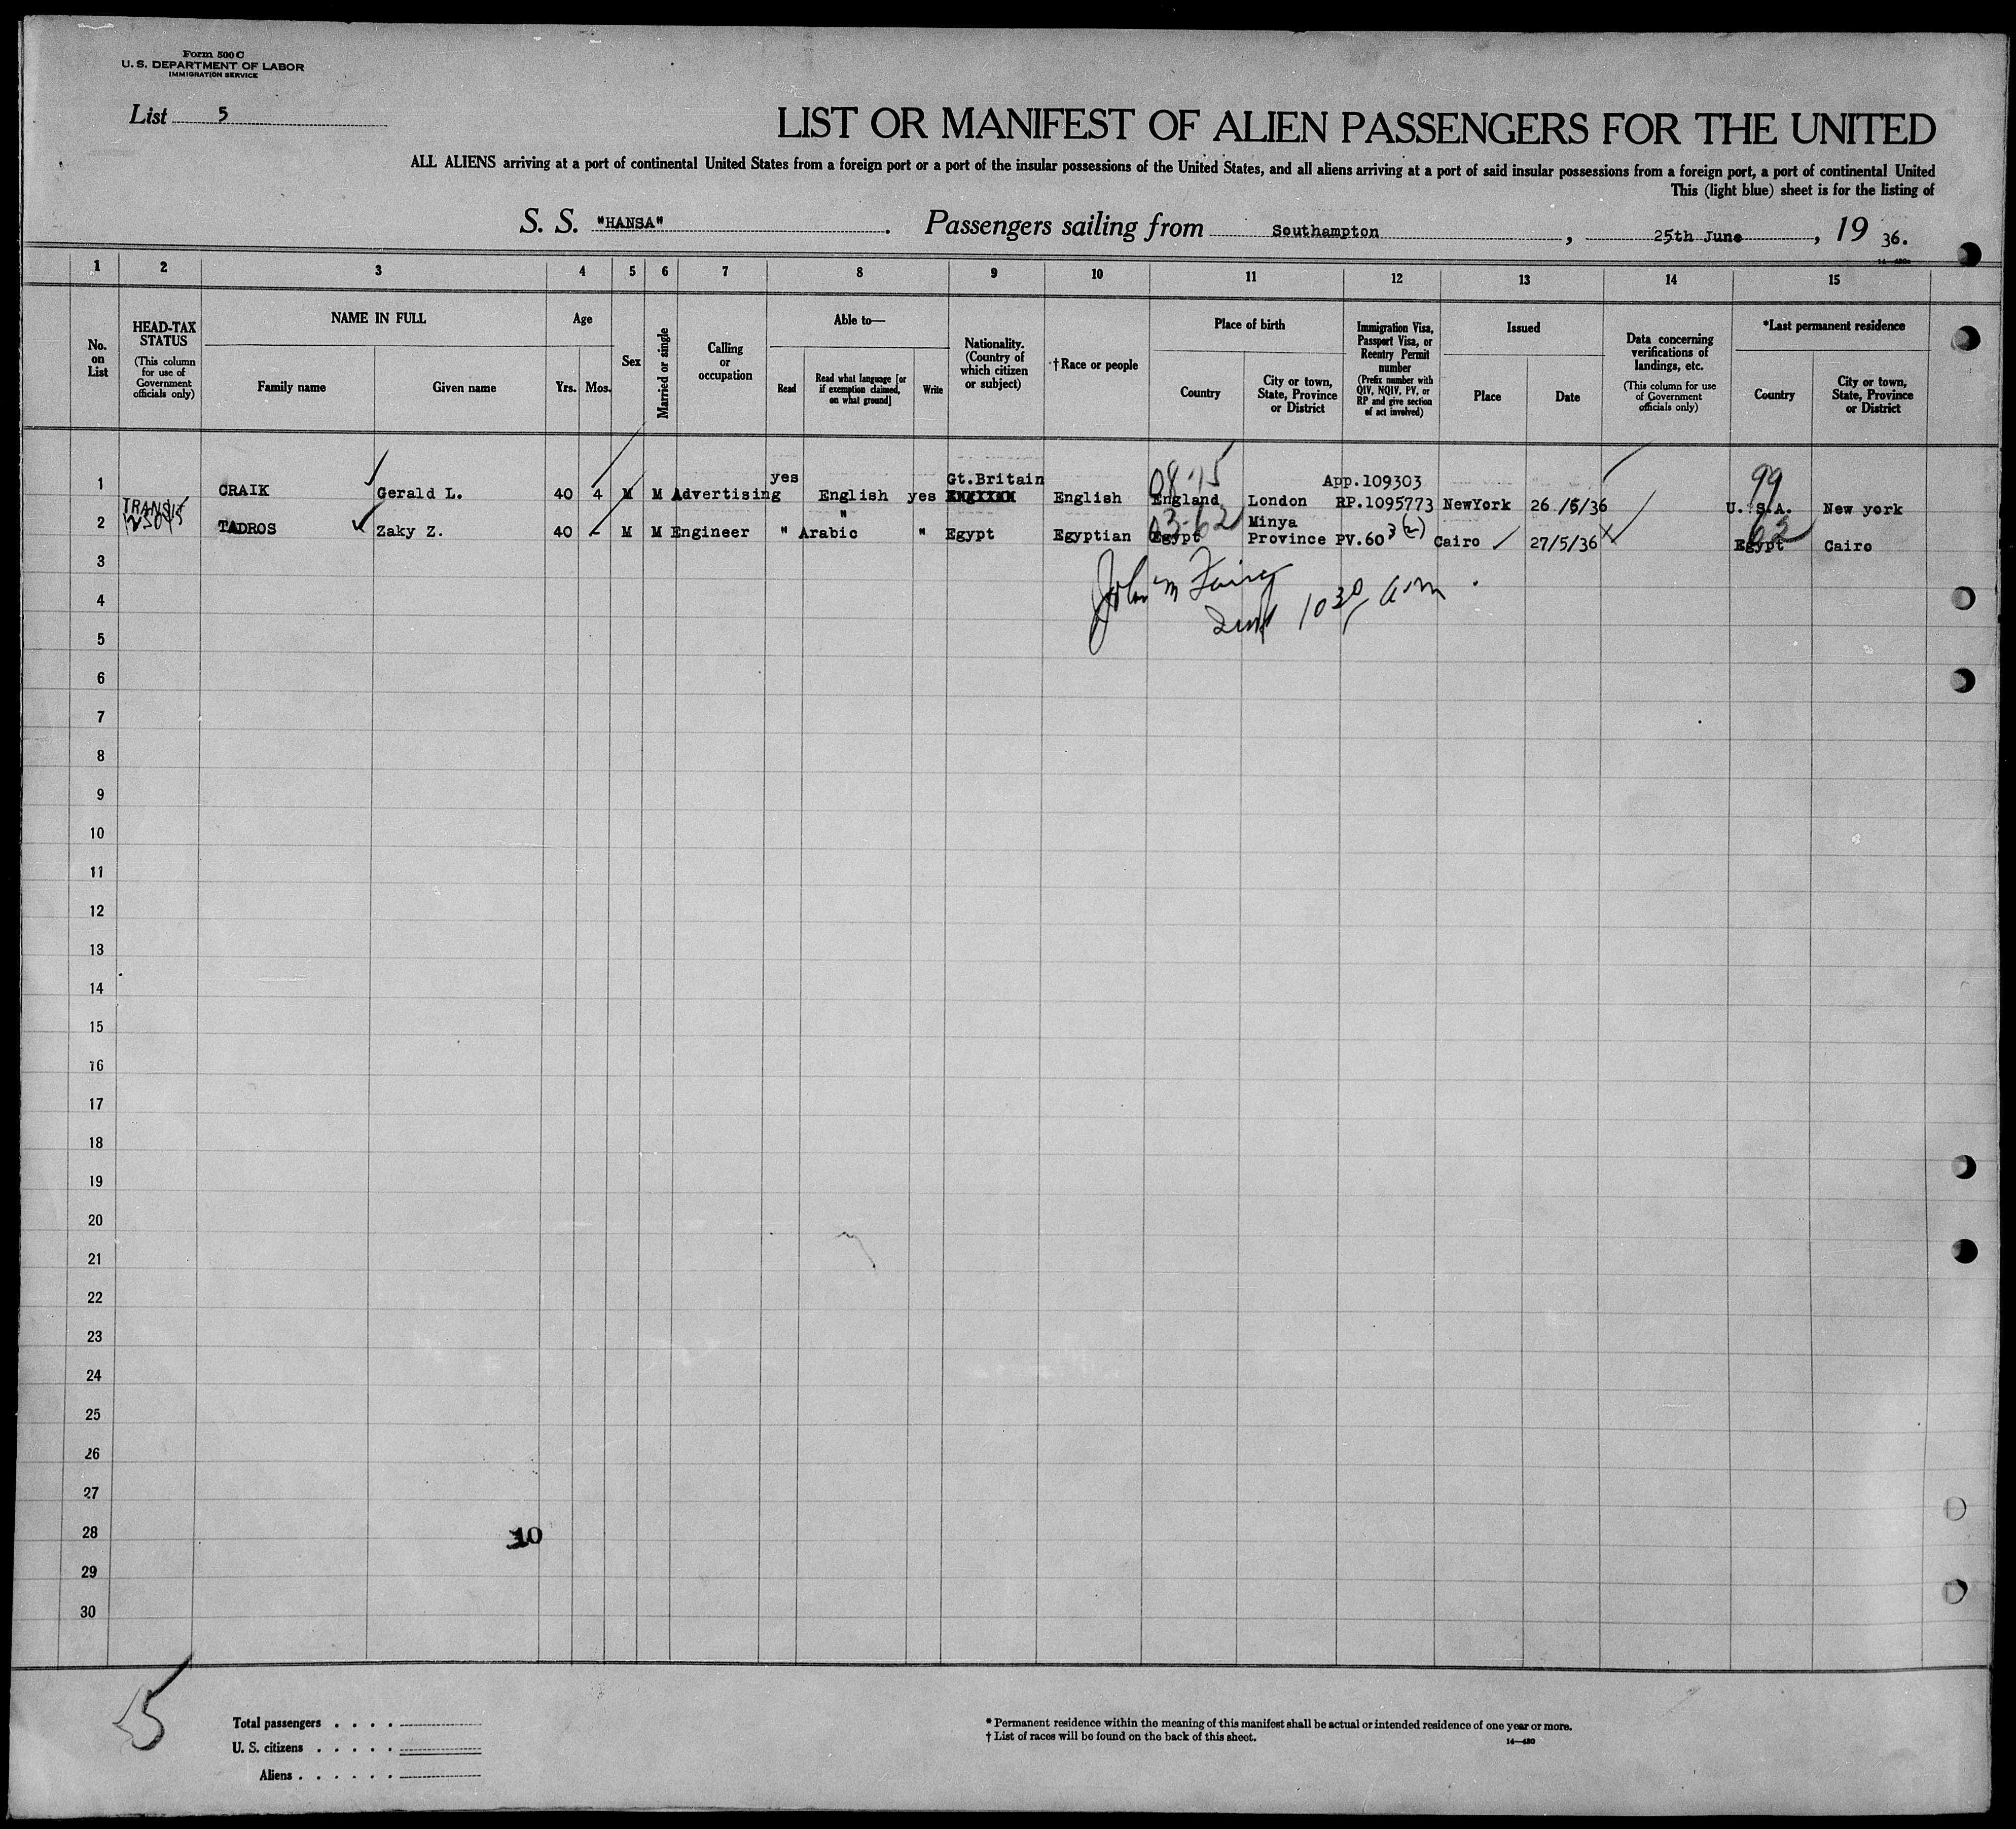 Form 500 C
U. S. DEPARTMENT OF LABOR
IMMIGRATION SERVICE
List 5
LIST OR MANIFEST OF ALIEN PASSENGERS FOR THE UNITED
ALL ALIENS arriving at a port of continental United States from a foreign port or a port of the insular possessions of the United States, and all aliens arriving at a port of said insular possessions from a foreign port, a port of continental United
This (light blue) sheet is for the listing of
S. S. "HANSA". Passengers sailing from Southampton, 25th June, 19 36.
1 2 3 4 5 6 7 8 9 10 11 12 13 14 15
No. on List
HEAD-TAX STATUS (This column for use of Government officials only)
NAME IN FULL
Family name
Given name
Age
Yrs. Mos.
Sex
Married or single
Calling or occupation
Able to—
Read
Read what language [or if exemption claimed, on what ground]
Write
Nationality. (Country of which citizen or subject)
†Race or people
Place of birth
Country
City or town, State, Province or District
Immigration Visa, Passport Visa, or Reentry Permit number (Prefix number with QIV, NQIV, PV, or RP and give section of act involved)
Issued
Place
Date
Data concerning verifications of landings, etc. (This column for use of Government officials only)
*Last permanent residence
Country
City or town, State, Province or District
yes Gt.Britain 08-75 App.109303 99
1 CRAIK Gerald L. 40 4 M M Advertising English yes English England London RP.1095773 NewYork 26/5/36 U.S.A. New york
TRANSIT " 03-62 Minya 62
2 TADROS Zaky Z. 40 - M M Engineer " Arabic " Egypt Egyptian Egypt Province PV.60 3(2) Cairo 27/5/36 Egypt Cairo
3
4 John M
5 10 30 am
6
7
8
9
10
11
12
13
14
15
16
17
18
19
20
21
22
23
24
25
26
27
28 10
29
30
5
Total passengers . . . .
U. S. citizens . . . . .
Aliens . . . . . .
* Permanent residence within the meaning of this manifest shall be actual or intended residence of one year or more.
† List of races will be found on the back of this sheet.
14—430